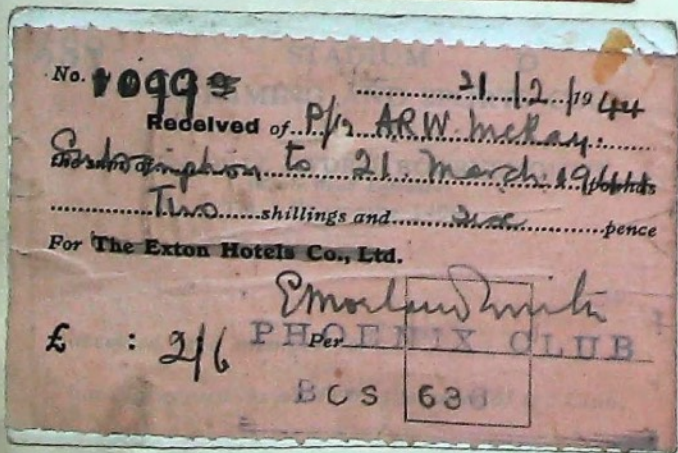 No. 1099 21/2/1944
Received of P/12 A.R.W. McKay.
the sum of Subscription to 21. March. 1944 pounds
Two shillings and six pence
For The Exton Hotels Co., Ltd.
£ : 2/6 Per
PHOENIX CLUB
BCS 636
STADIUM